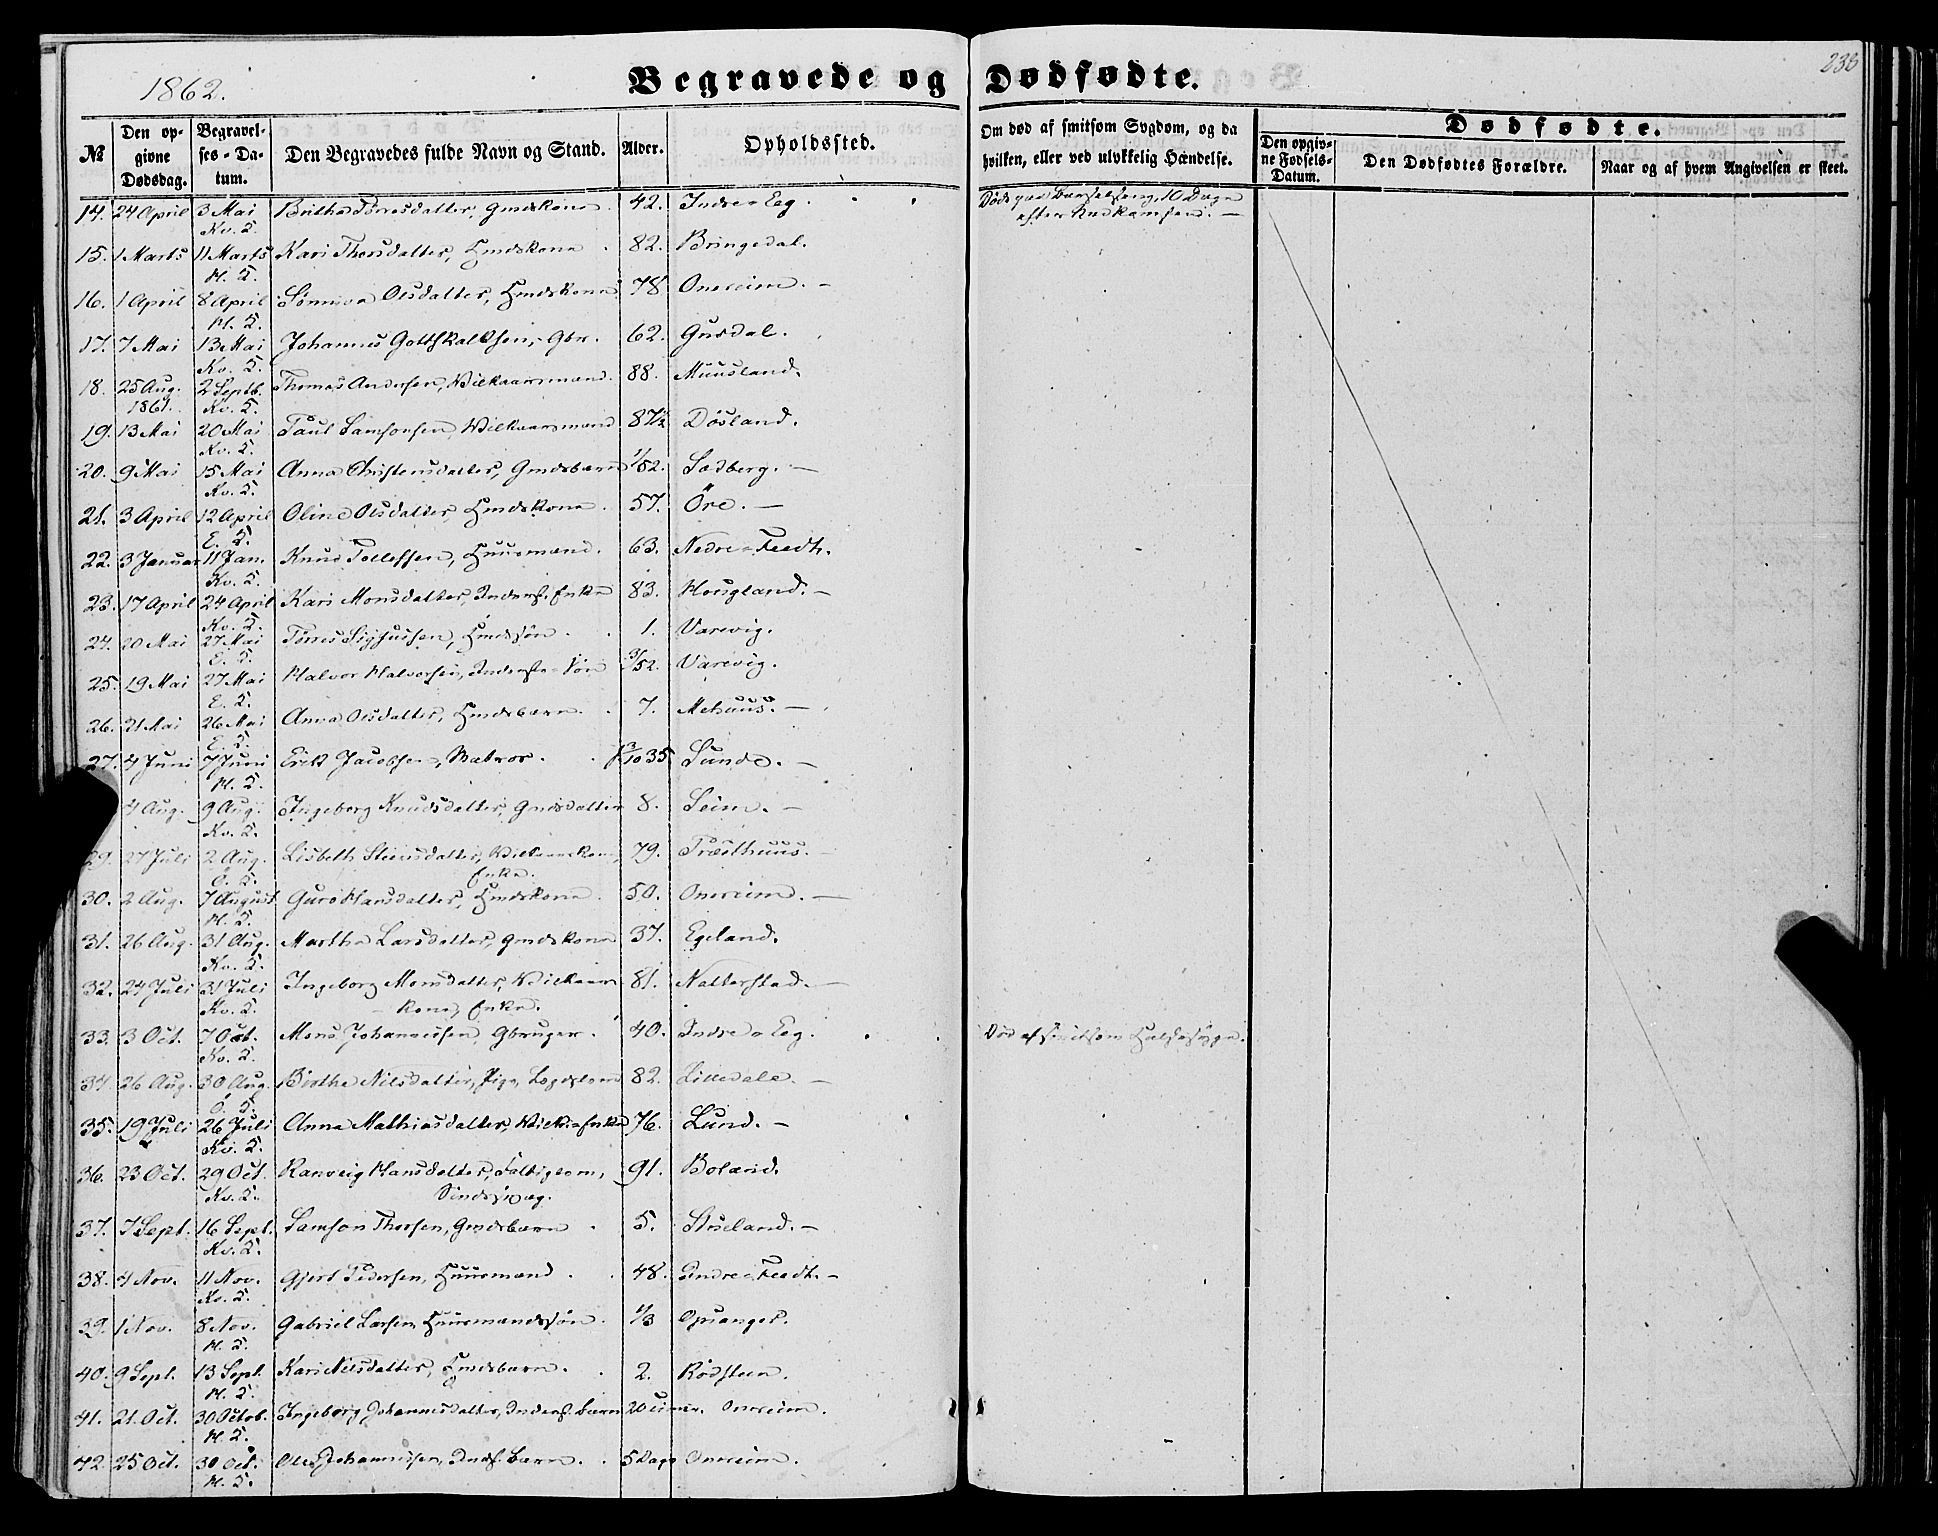 1862.
Begravede og Dødfødte.
233
№
Den opgivne Dødsdag.
Begravelses-Datum.
Den Begravedes fulde Navn og Stand.
Alder.
Opholdssted.
Om død af smitsom Sygdom, og da hvilken, eller ved ulykkelig Hændelse.
Dødfødte.
Den opgivne Fødsels-Datum.
Den Dødfødtes Forældre.
Naar og af hvem Angivelsen er skeet.
14. 24 April 3 Mai Kv. S. Britha Tørresdatter, Gmdskone. 42. Indre-Eeg. Død paa Barselseng, 10 Dage efter Nedkomsten.
15. 1 Marts 11 Marts H. S. Kari Thorsdatter, Hmdskone. 82. Bringedal.
16. 1 April 8 April H. S. Sønneva Olsdatter, Hmdskone 78 Onereim.
17. 7 Mai 13 Mai Kv. S. Johannes Gottskalksen, Gbr. 62. Guddal.
18. 25 Aug. 1861. 2 Septb. Kv. S. Thomas Andersen, Vilkaarsmand. 88. Muusland.
19. 13 Mai 20 Mai Kv. S. Paul Samsonsen, Vilkaarsmand 87½ Døsland.
20. 9 Mai 15 Mai Kv. S. Anna Christensdatter, Gmdsbarn 1/52. Sædberg.
21. 3 April 12 April E. S. Oline Olsdatter, Hmdskone. 57. Öre.
22. 3 Januar 11 Jan. Kv. S. Knud Tollefsen, Huusmand. 63. Nedre-Feedt.
23. 17 April 24 April Kv. S. Kari Monsdatter, Inderst. Enke 83. Hougland.
24. 20 Mai 27 Mai E. S. Tørres Sjghussen, Hmdssøn. 1. Varevig.
25. 19 Mai 27 Mai E. S. Halvor Halvorsen, Inderste-Søn 3/52. Varevig.
26. 21 Mai 26 Mai E. S. Anna Olsdatter, Hmdsbarn. 7. Mehuus.
27. 4 Juni 7 Juni H. S. Erik Jacobsen, Matros. 35 Sunde.
4 Aug. 9 Aug. Kv. S. Ingeborg Knudsdatter, Gmdsdatter 8. Seim.
29. 27 Juli 2 Aug. Ö. S. Lisbeth Steensdatter, Vilkaarskone, Enke. 79. Træsthuus.
30. 2 Aug. 7 August H. S. Guro Hansdatter, Hmdskone. 50. Onereim.
31. 26 Aug. 31 Aug. Kv. S. Martha Larsdatter, Gmdskone 37. Egeland.
32. 24 Juli 31 Juli Kv. S. Ingeborg Monsdatter, Vilkaarskone, Enke. 81. Natterstad.
33. 3 Oct. 7 Oct. Kv. S. Mons Johannessen Gbruger. 40. Indre-Eeg. Død af smitsom Halssyge.
34. 26 Aug. 30 Aug. Ö. S. Birthe Nilsdatter, Pige, Lægdslem 82. Lilledale.
35. 19 Juli 26 Juli Kv. S. Anna Mathiasdatter, Vilk. Enke 76. Lund.
36. 23 Oct. 29 Oct. Kv. S. Ranveig Hansdatter, Fattiglem, Sindssvag. 91. Boland.
37. 7 Sept. 16 Sept. Kv. S. Samson Thorsen, Gmdsbarn. 5. Stueland.
38. 4 Nov. 11 Nov. Kv. S. Gjert Pedersen, Huusmand. 48. Indre-Feedt.
39. 1 Nov. 8 Nov. H. S. Gabriel Larsen Huusmandssøn. 1/3 Opsanger.
40. 9 Sept. 13 Sept. H. S. Kari Nilsdatter, Hmdsbarn. 2. Rødsteen.
41. 21. Oct. 30 Octob. H. S. Ingeborg Johannesdatter, Inderst. Barn 20 Onereim.
42. 25 Oct. 30 Oct. H. S. Ole Johannessen, Indst. Barn. 5 Dage Onereim.